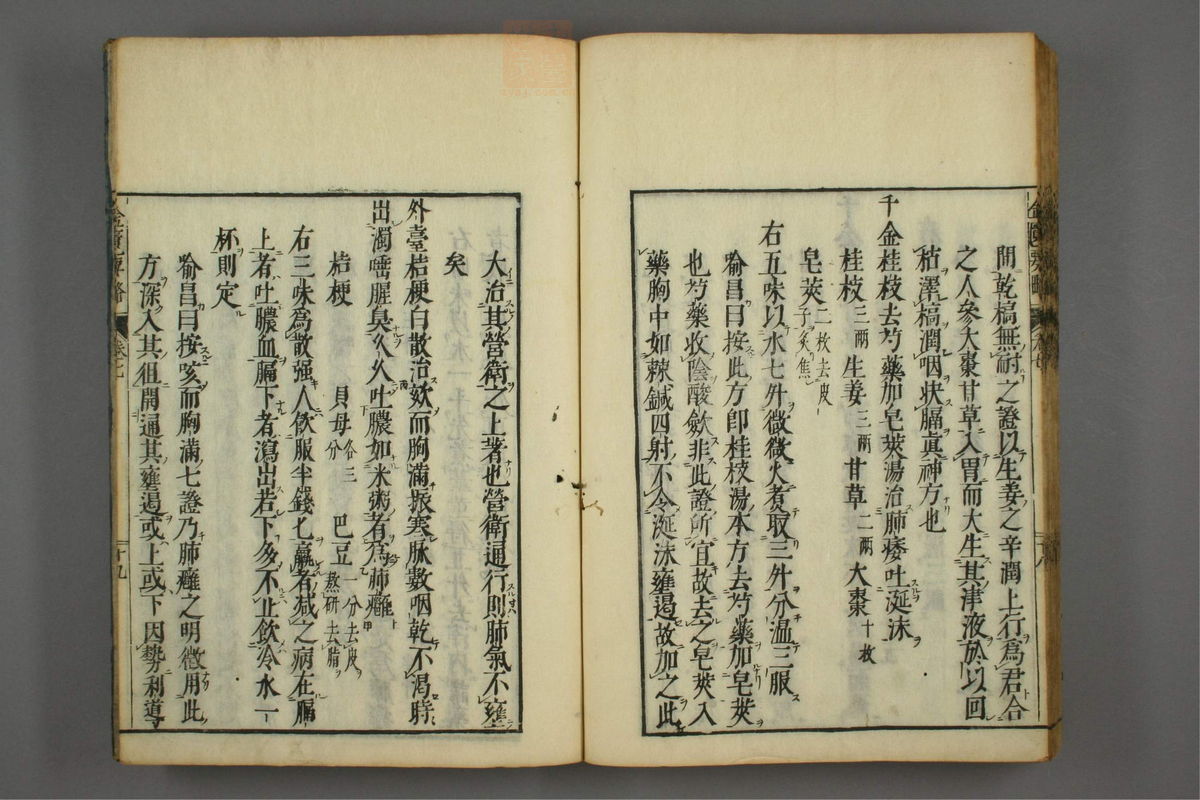 間乾槁無耐之證以生姜之辛潤上行爲君合
之人參大棗甘草入胃而大生其津液於以回
枯澤槁潤咽狀膈真神方也
千金桂枝去芍藥加皂莢湯治肺痿吐涎沫
桂枝三兩 生姜三兩 甘草二兩 大棗十枚
皂莢二枚去皮子炙焦
右五味以水七升微微火煮取三升分溫三服
喻昌曰按此方卽桂枝湯本方去芍藥加皂莢
也芍藥收陰酸斂非此證所宜故去之皂莢入
藥胸中如棘鍼四射不令涎沫壅遏故加之此
大治其營衛之上著也營衛通行則肺氣不壅
矣
外臺桔梗白散治欬而胸滿振寒脉數咽乾不渴時
出濁唾腥臭久久吐膿如米粥者爲肺癰
桔梗 貝母各三分 巴豆一分去皮熬研去脂
右三味爲散强人飲服半錢匕羸者減之病在膈
上者吐膿血膈下者瀉出若下多不止飲冷水一
杯則定
喻昌曰按咳而胸滿七證乃肺癰之明徵用此
方深入其徂開通其壅遏或上或下因勢利導